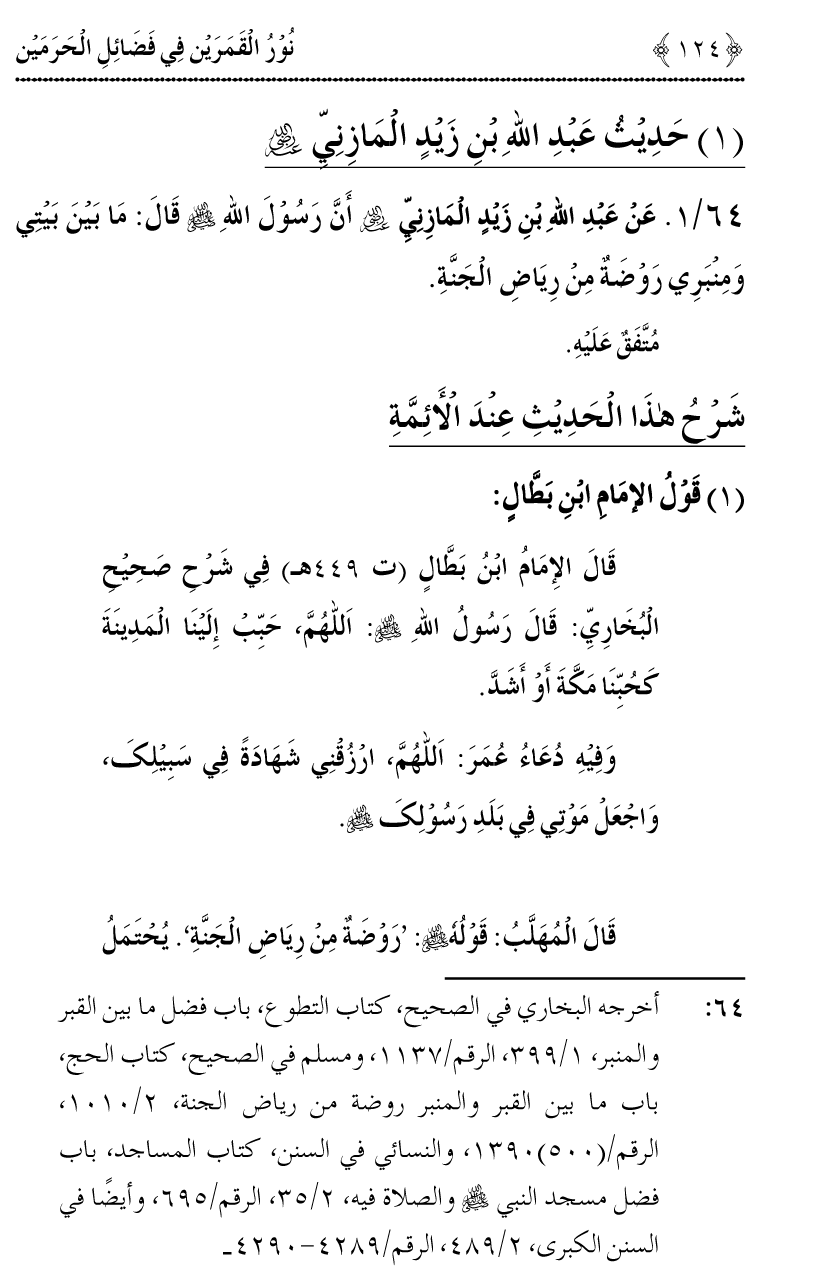 ﴿١٢٤﴾ نُوْرُ الْقَمَرَيْن فِي فَضَائِلِ الْحَرَمَيْن
(١) حَدِيْثُ عَبْدِ اللهِ بْنِ زَيْدٍ الْمَازِنِيِّ ﵁
١/٦٤. عَنْ عَبْدِ اللهِ بْنِ زَيْدٍ الْمَازِنِيِّ ﵁ أَنَّ رَسُوْلَ اللهِ ﷺ قَالَ: مَا بَيْنَ بَيْتِي
وَمِنْبَرِي رَوْضَةٌ مِنْ رِيَاضِ الْجَنَّةِ.
مُتَّفَقٌ عَلَيْهِ.
شَرْحُ هٰذَا الْحَدِيْثِ عِنْدَ الْأَئِمَّةِ
(١) قَوْلُ الإمَامِ ابْنِ بَطَّالٍ:
قَالَ الإِمَامُ ابْنُ بَطَّالٍ (ت ٤٤٩هـ) فِي شَرْحِ صَحِيْحِ
الْبُخَارِيِّ: قَالَ رَسُولُ اللهِ ﷺ: اَللّٰهُمَّ، حَبِّبْ إِلَيْنَا الْمَدِينَةَ
كَحُبِّنَا مَكَّةَ أَوْ أَشَدَّ.
وَفِيْهِ دُعَاءُ عُمَرَ: اَللّٰهُمَّ، ارْزُقْنِي شَهَادَةً فِي سَبِيْلِکَ،
وَاجْعَلْ مَوْتِي فِي بَلَدِ رَسُوْلِکَ ﷺ.
قَالَ الْمُهَلَّبُ: قَوْلُهٗ ﷺ: ’رَوْضَةٌ مِنْ رِيَاضِ الْجَنَّةِ‘. يُحْتَمَلُ
٦٤: أخرجه البخاري في الصحيح، كتاب التطوع، باب فضل ما بين القبر
والمنبر، ٣٩٩/١، الرقم/١١٣٧، ومسلم في الصحيح، كتاب الحج،
باب ما بين القبر والمنبر روضة من رياض الجنة، ١٠١٠/٢،
الرقم/(٥٠٠)١٣٩٠، والنسائي في السنن، كتاب المساجد، باب
فضل مسجد النبي ﷺ والصلاة فيه، ٣٥/٢، الرقم/٦٩٥، وأيضًا في
السنن الكبرى، ٤٨٩/٢، الرقم/٤٢٨٩-٤٢٩٠ـ